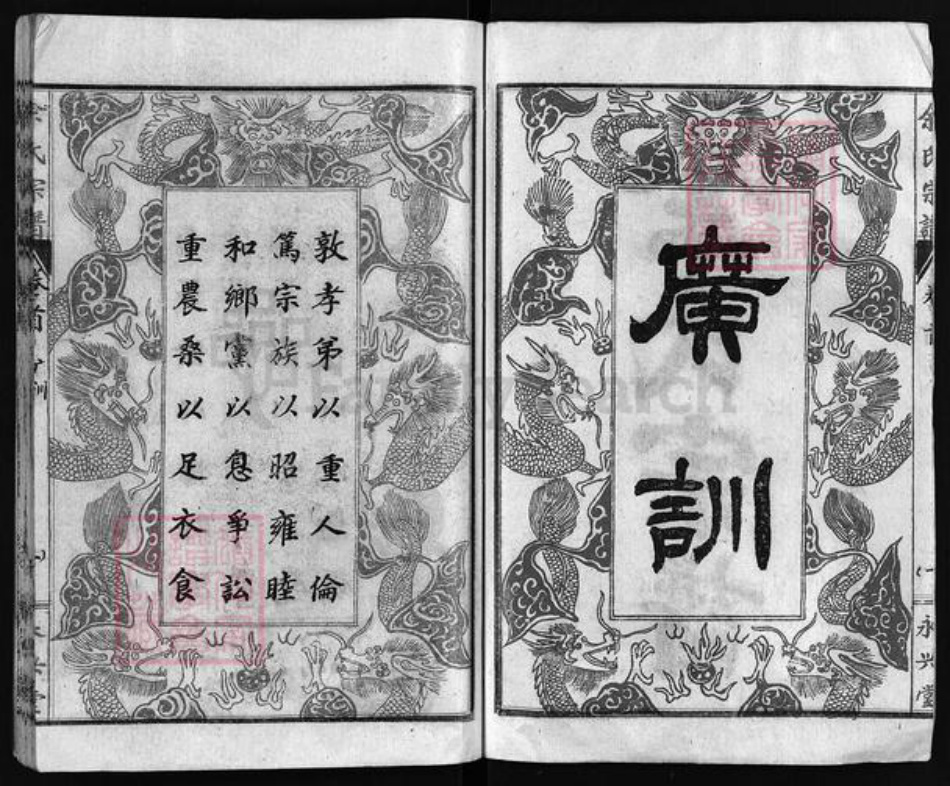 廣訓
氏宗譜
永兴堂
敦孝弟以重人倫
篤宗族以昭雍睦
和鄉黨以息爭訟
重農桑以足衣食
氏宗譜
卷首
FamilySearch